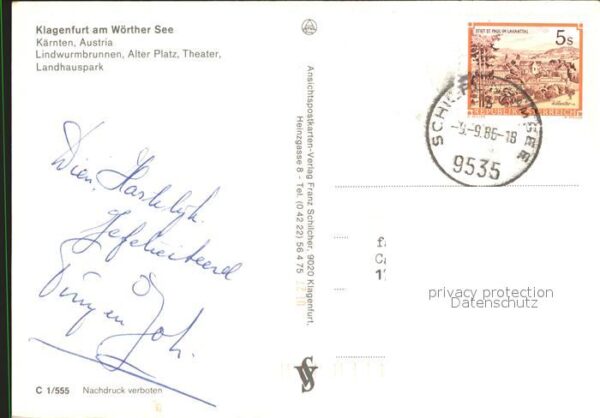 Klagenfurt am Wörther See
Kärnten, Austria
Lindwurmbrunnen, Alter Platz, Theater,
Landhauspark
Hartelijk
Gefeliciteerd
C 1/555 Nachdruck verboten
Ansichtspostkarten-Verlag Franz Schilcher, 9020 Klagenfurt,
Heinzgasse 8 - Tel. (0 42 22) 56 4 75
STIFT ST. PAUL IM LAVANTTAL
5s
REPUBLIK ÖSTERREICH
9.86-18
9535
privacy protection
Datenschutz